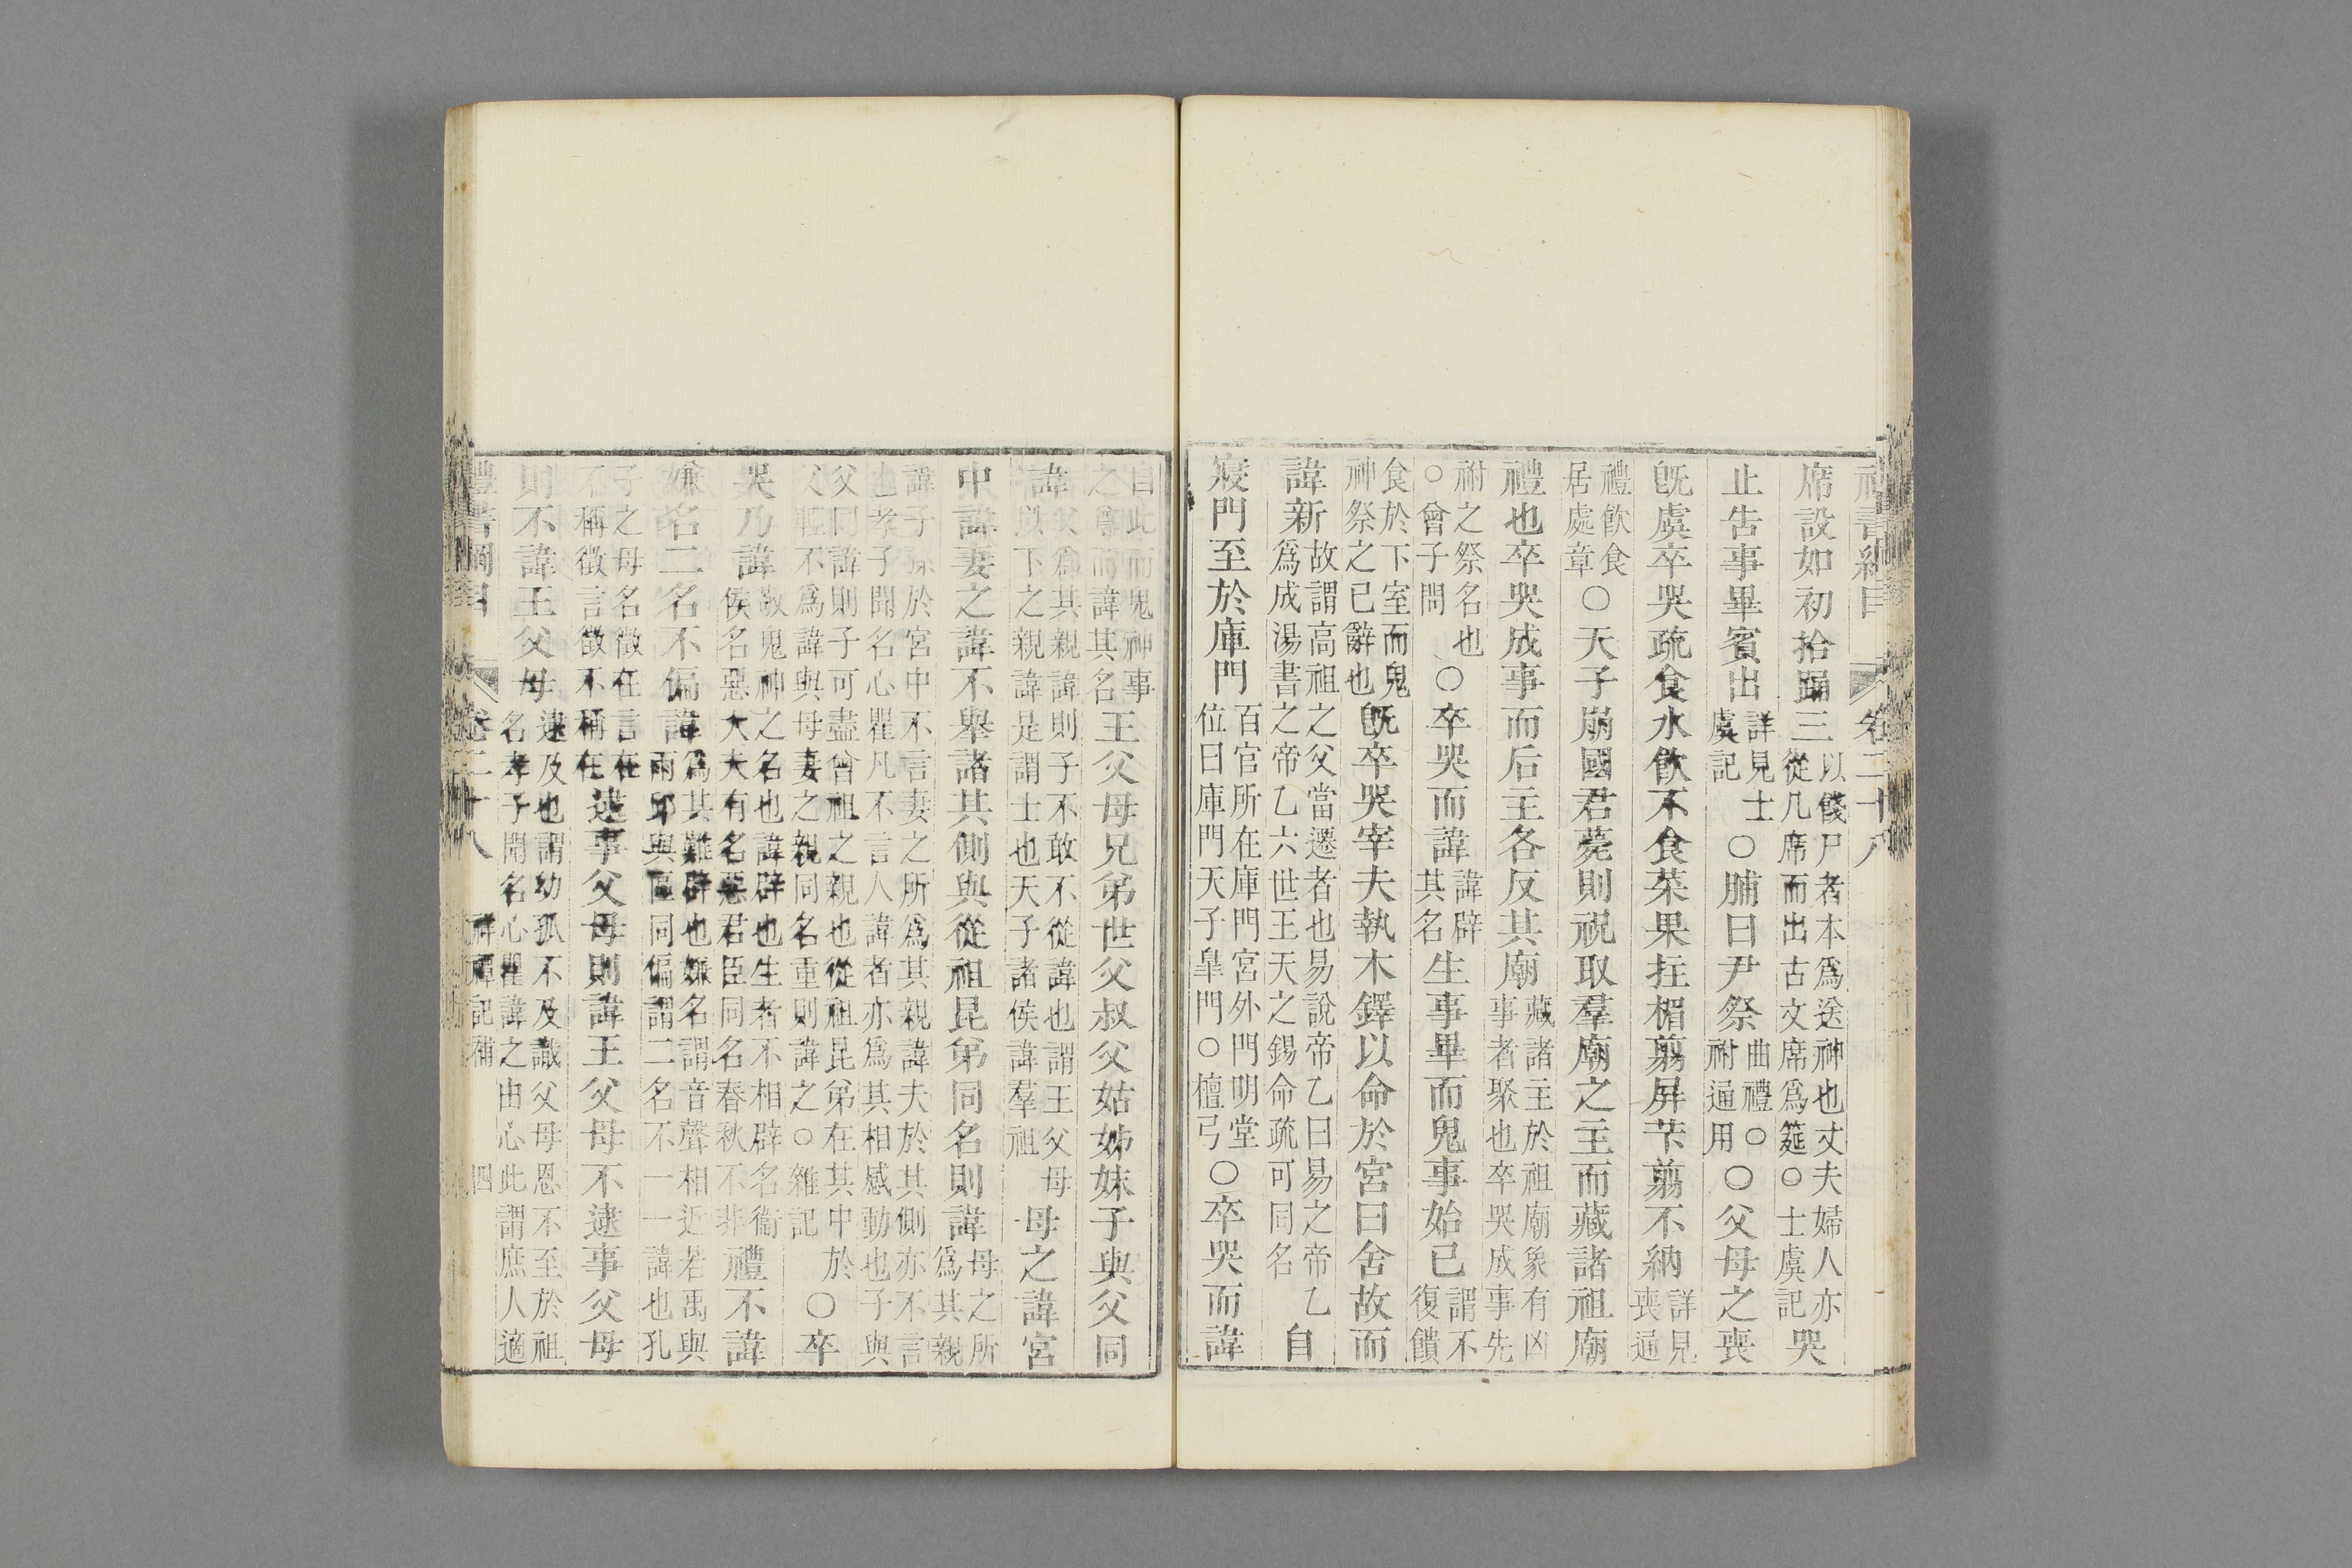 禮書綱目 卷二十八
席設如初拾踊三以餞尸者本爲送神也丈夫婦人亦從几席而出古文席爲筵○士虞記哭
止告事畢賓出詳見士虞記○脯曰尹祭曲禮○祔通用○父母之喪
旣虞卒哭疏食水飮不食菜果拄楣翦屛芐翦不納詳見喪通
禮飮食居處章○天子崩國君薨則祝取羣廟之主而藏諸祖廟
禮也卒哭成事而后主各反其廟藏諸主於祖廟象有凶事者聚也卒哭成事先
祔之祭名也○曾子問○卒哭而諱諱辟其名生事畢而鬼事始已謂不復饋
食於下室而鬼神祭之已辭也旣卒哭宰夫執木鐸以命於宮曰舍故而
諱新故謂高祖之父當遷者也易說帝乙曰易之帝乙爲成湯書之帝乙六世王天之錫命疏可同名自
寢門至於庫門百官所在庫門宮外門明堂位曰庫門天子皐門○檀弓○卒哭而諱
自此而鬼神事之尊而諱其名王父母兄弟世父叔父姑姊妹子與父同
諱父爲其親諱則子不敢不從諱也謂王父母以下之親諱是謂士也天子諸侯諱羣祖母之諱宮
中諱妻之諱不舉諸其側與從祖昆弟同名則諱母之所爲其親
諱子孫於宮中不言妻之所爲其親諱夫於其側亦不言也孝子聞名心瞿凡不言人諱者亦爲其相感動也子與
父同諱則子可盡曾祖之親也從祖昆弟在其中於父輕不爲諱與母妻之親同名重則諱之○雜記○卒
哭乃諱敬鬼神之名也諱辟也生者不相辟名衞侯名惡大夫有名惡君臣同名春秋不非禮不諱
嫌名二名不偏諱爲其難辟也嫌名謂音聲相近若禹與雨邱與區同偏謂二名不一一諱也孔
子之母名徵在言在不稱徵言徵不稱在逮事父母則諱王父母不逮事父母
則不諱王父母逮及也謂幼孤不及識父母恩不至於祖名孝子聞名心瞿諱之由心此謂庶人適
禮書綱目 卷二十八 祥禫記補 四